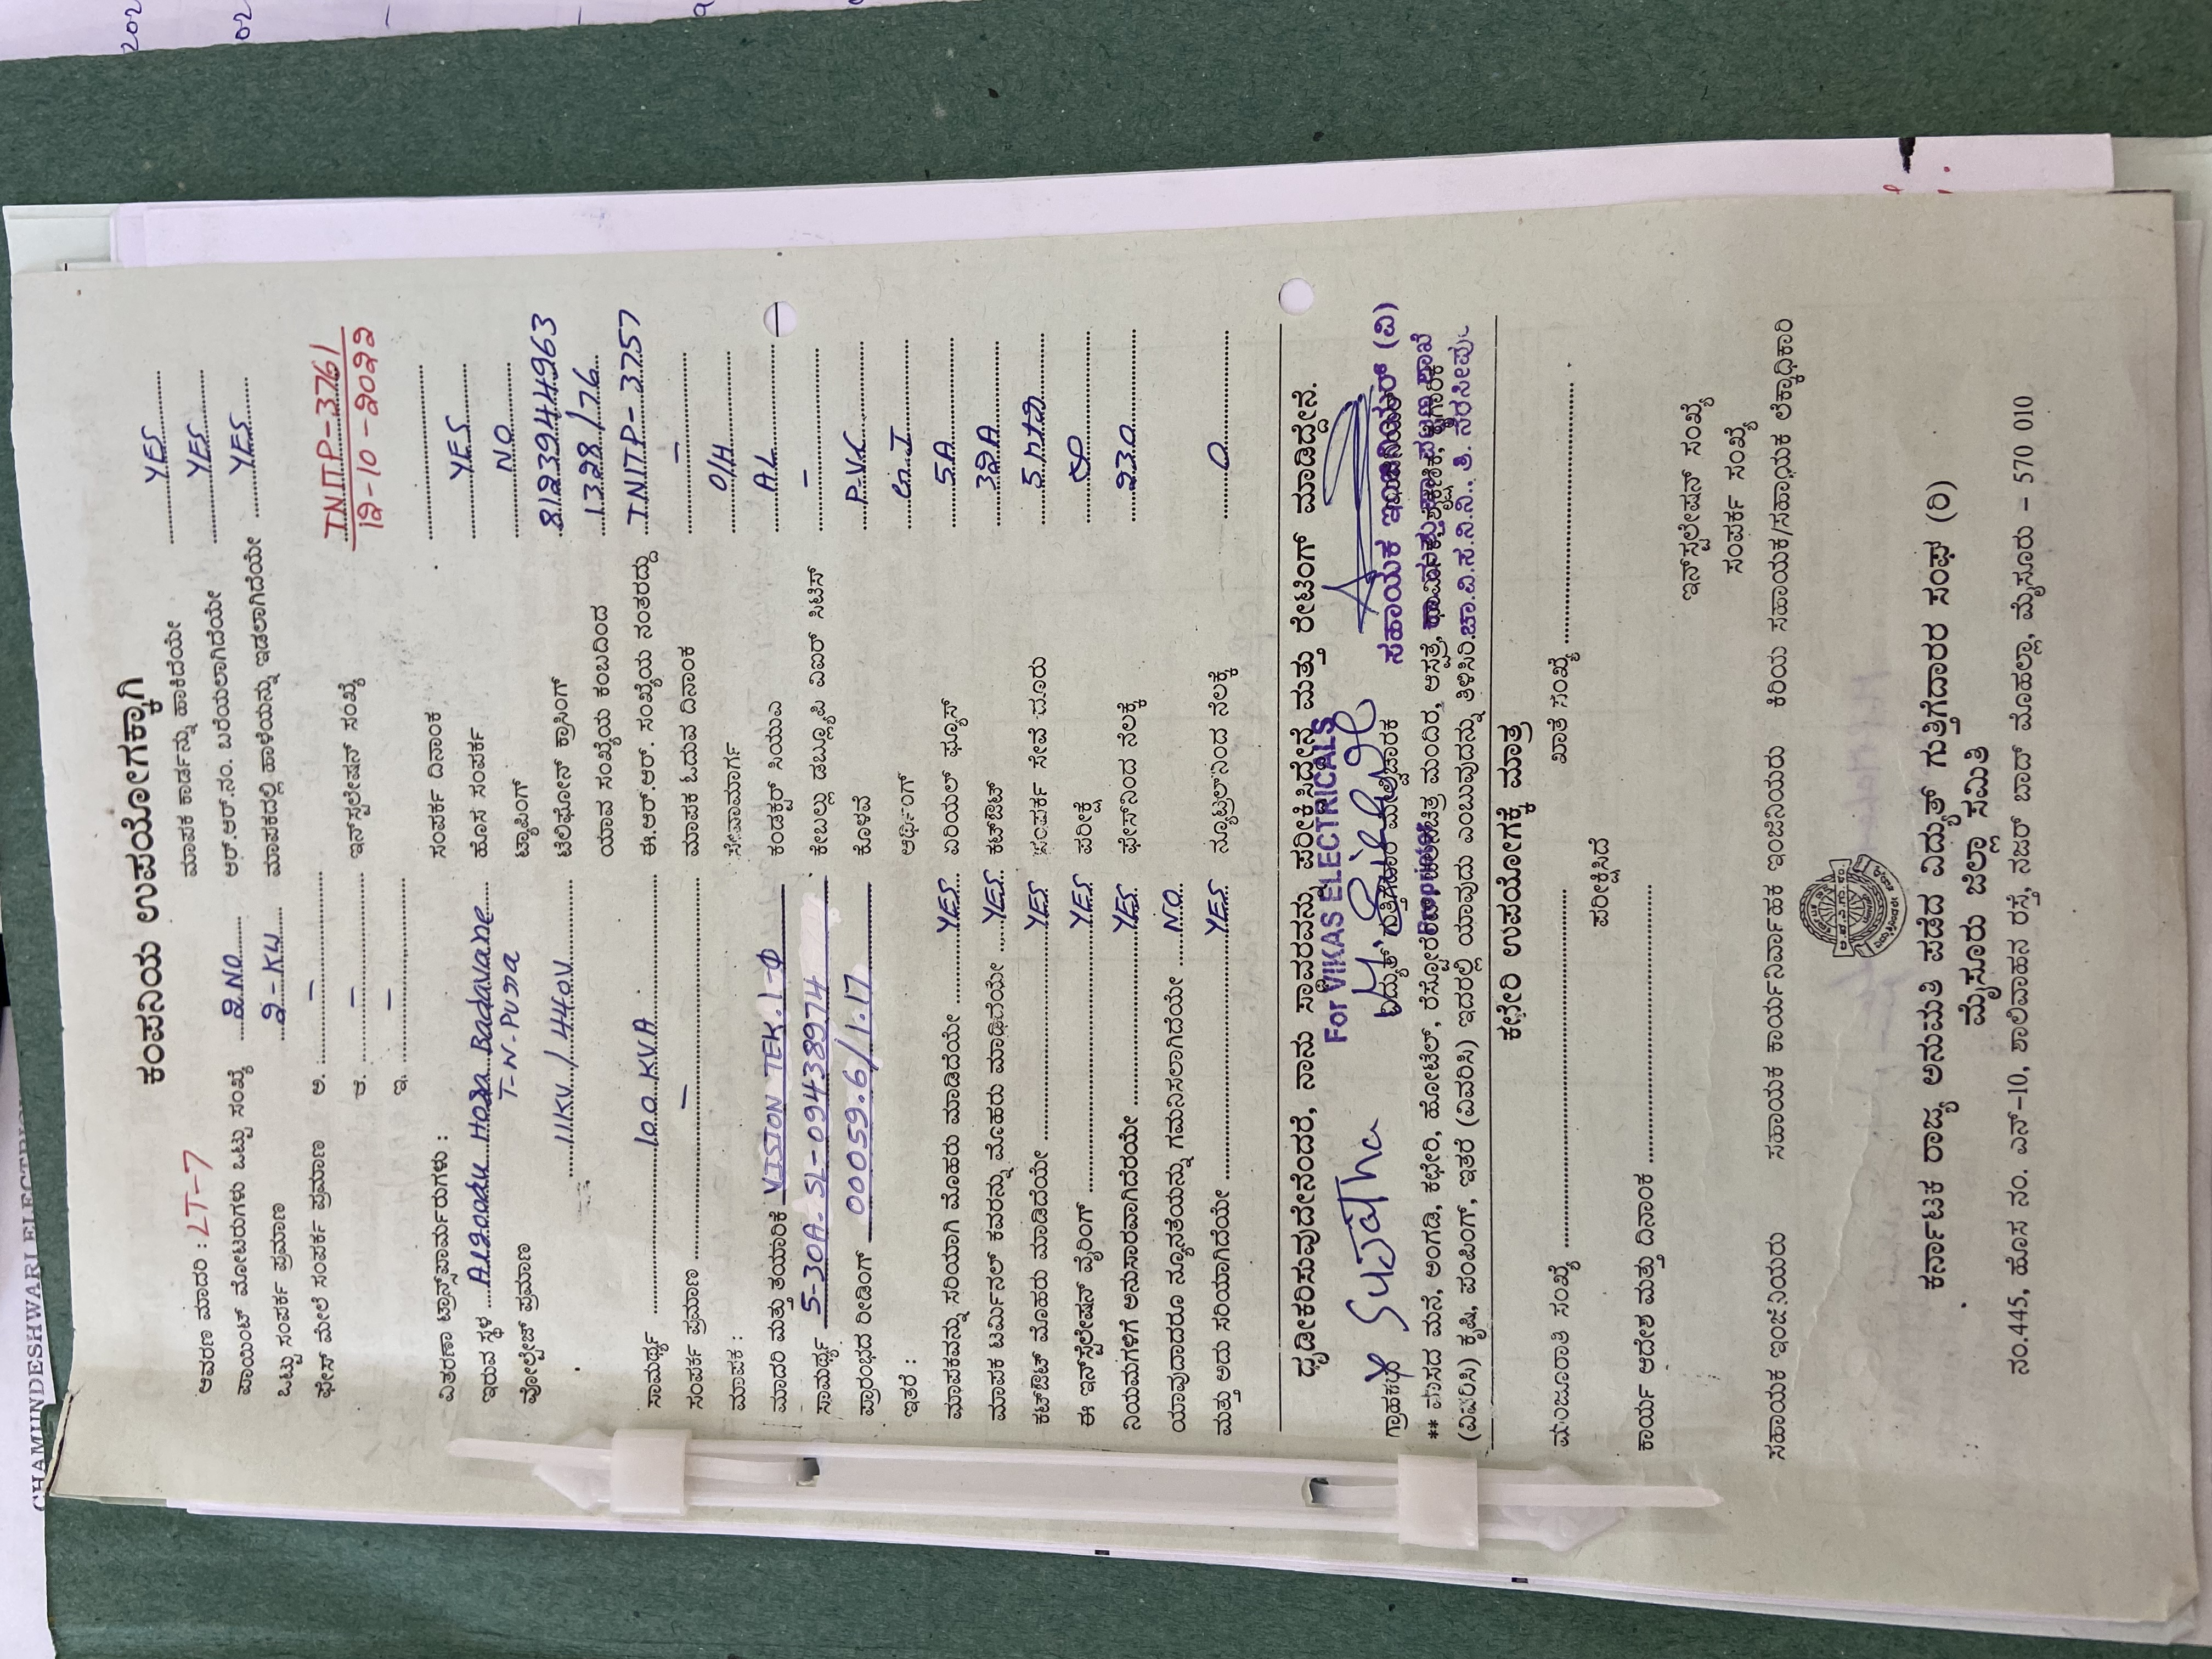 CHAMINDESHWARI ELECTRIC
ಕಂಪನಿಯ ಉಪಯೋಗಕ್ಕಾಗಿ
ಆವರಣ ಮಾದರಿ : LT-7 ಮಾಪಕ ಕಾರ್ಡನ್ನು ಹಾಕಿದೆಯೇ YES
ಪಾಯಿಂಟ್ ಮೋಟರುಗಳು ಒಟ್ಟು ಸಂಖ್ಯೆ 2 NO ಆರ್.ಆರ್.ನಂ. ಬರೆಯಲಾಗಿದೆಯೇ YES
ಒಟ್ಟು ಸಂಪರ್ಕ ಪ್ರಮಾಣ 2-KW ಮಾಪಕದಲ್ಲಿ ಹಾಳೆಯನ್ನು ಇಡಲಾಗಿದೆಯೇ YES
ಫೇಸ್ ಮೇಲೆ ಸಂಪರ್ಕ ಪ್ರಮಾಣ ಅ. –
ಆ. – ಇನ್‌ಸ್ಟಲೇಷನ್ ಸಂಖ್ಯೆ TNITP-3761
ಇ. – 12-10-2022
ವಿತರಣಾ ಟ್ರಾನ್ಸ್‌ಫಾರ್ಮರುಗಳು : ಸಂಪರ್ಕ ದಿನಾಂಕ
ಇರುವ ಸ್ಥಳ Alagodu Hosa Badavane ಹೊಸ ಸಂಪರ್ಕ YES
T-N-Pura
ವೋಲ್ಟೇಜ್ ಪ್ರಮಾಣ ಟ್ಯಾಪಿಂಗ್ NO
11KV / 440V ಟೆಲಿಫೋನ್ ಕ್ರಾಸಿಂಗ್ 8123944963
ಯಾವ ಸಂಖ್ಯೆಯ ಕಂಬದಿಂದ 1328/76
ಸಾಮರ್ಥ್ಯ 100 KVA ಈ.ಆರ್.ಆರ್. ಸಂಖ್ಯೆಯ ನಂತರದ್ದು TNITP-3757
ಸಂಪರ್ಕ ಪ್ರಮಾಣ – ಮಾಪಕ ಓದುವ ದಿನಾಂಕ –
ಮಾಪಕ : ಸೇವಾಮಾರ್ಗ O/H
ಮಾದರಿ ಮತ್ತು ತಯಾರಿಕೆ VISION TEK. 1-Φ ಕಂಡಕ್ಟರ್ ಸಿಯುಎ AL
ಸಾಮರ್ಥ್ಯ 5-30A- SL-09438974 ಕೇಬಲ್ಲು ಡಬ್ಲ್ಯೂಪಿ ವಿಐಆರ್ ಸಿಟಿಸ್ –
ಪ್ರಾರಂಭದ ರೀಡಿಂಗ್ 00059.6/1.17 ಕೊಳವೆ P.VC
ಇತರೆ : ಆರ್ಥಿಂಗ್ G.I
ಮಾಪಕವನ್ನು ಸರಿಯಾಗಿ ಮೊಹರು ಮಾಡಿದೆಯೇ YES ಏರಿಯಲ್ ಫ್ಯೂಸ್ 5A
ಮಾಪಕ ಟರ್ಮಿನಲ್ ಕವರನ್ನು ಮೊಹರು ಮಾಡಿದೆಯೇ YES ಕಟ್‌ಔಟ್ 32A
ಕಟ್‌ಔಟ್ ಮೊಹರು ಮಾಡಿದೆಯೇ YES ಸಂಪರ್ಕ ಸೇವೆ ದೂರು
ಈ ಇನ್‌ಸ್ಟಲೇಷನ್ ವೈರಿಂಗ್ YES ಪರೀಕ್ಷೆ
ನಿಯಮಗಳಿಗೆ ಅನುಸಾರವಾಗಿದೆರೆಯೇ YES ಫೇಸ್‌ನಿಂದ ನೆಲಕ್ಕೆ 230
ಯಾವುದಾದರೂ ನ್ಯೂನತೆಯನ್ನು ಗಮನಿಸಲಾಗಿದೆಯೇ NO
ಮತ್ತು ಅದು ಸರಿಯಾಗಿದೆಯೇ YES ನ್ಯೂಟ್ರಲ್‌ನಿಂದ ನೆಲಕ್ಕೆ 0
ಧೃಡೀಕರಿಸುವುದೇನೆಂದರೆ, ನಾನು ಸ್ಥಾವರವನ್ನು ಪರೀಕ್ಷಿಸಿದ್ದೇನೆ ಮತ್ತು ರೇಟಿಂಗ್ ಮಾಡಿದ್ದೇನೆ.
For VIKAS ELECTRICALS
ಗ್ರಾಹಕರು Sujatha ವಿದ್ಯುತ್ ಗುತ್ತಿಗೆದಾರ ಮೇಲ್ವಿಚಾರಕ ಸಹಾಯಕ ಇಂಜಿನಿಯರ್ (ವಿ)
Proprietor
** ವಾಸದ ಮನೆ, ಅಂಗಡಿ, ಕಛೇರಿ, ಹೋಟೆಲ್, ರೆಸ್ಟೋರೆಂಟ್, ಚಲನಚಿತ್ರ ಮಂದಿರ, ಆಸ್ಪತ್ರೆ,
(ವಿವರಿಸಿ) ಕೃಷಿ, ಪಂಪಿಂಗ್, ಇತರೆ (ವಿವರಿಸಿ) ಇದರಲ್ಲಿ ಯಾವುದು ಎಂಬುವುದನ್ನು ತಿಳಿಸಿರಿ. ಚಾ.ವಿ.ಸ.ನಿ.ನಿ., ತಿ. ನರಸೀಪುರ
ಕಛೇರಿ ಉಪಯೋಗಕ್ಕೆ ಮಾತ್ರ
ಮಂಜೂರಾತಿ ಸಂಖ್ಯೆ ಖಾತೆ ಸಂಖ್ಯೆ
ಪರೀಕ್ಷಿಸಿದೆ
ಕಾರ್ಯ ಆದೇಶ ಮತ್ತು ದಿನಾಂಕ
ಇನ್‌ಸ್ಟಲೇಷನ್ ಸಂಖ್ಯೆ
ಸಂಪರ್ಕ ಸಂಖ್ಯೆ
ಸಹಾಯಕ ಇಂಜಿನಿಯರು ಸಹಾಯಕ ಕಾರ್ಯನಿರ್ವಾಹಕ ಇಂಜಿನಿಯರು ಕಿರಿಯ ಸಹಾಯಕ/ಸಹಾಯಕ ಲೆಕ್ಕಾಧಿಕಾರಿ
ಕರ್ನಾಟಕ ರಾಜ್ಯ ಅನುಮತಿ ಪಡೆದ ವಿದ್ಯುತ್ ಗುತ್ತಿಗೆದಾರರ ಸಂಘ (ರಿ)
ಮೈಸೂರು ಜಿಲ್ಲಾ ಸಮಿತಿ
ನಂ.445, ಹೊಸ ನಂ. ಎನ್-10, ಶಾಲಿವಾಹನ ರಸ್ತೆ, ನಜರ್ ಬಾದ್ ಮೊಹಲ್ಲಾ, ಮೈಸೂರು - 570 010